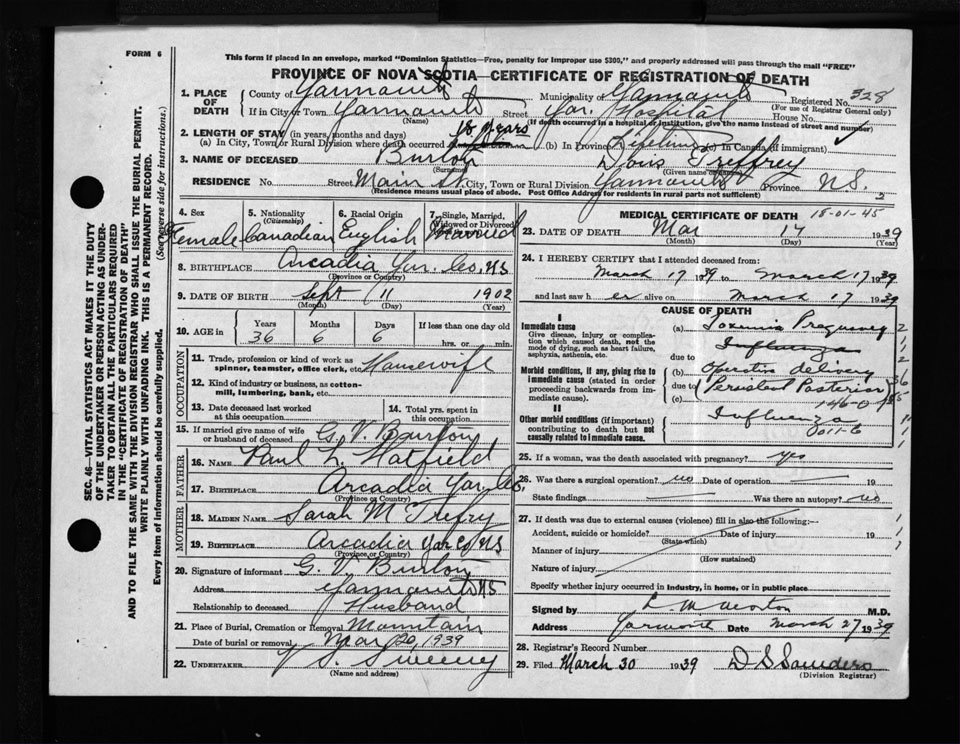 FORM 6
This form if placed in an envelope, marked "Dominion Statistics—Free, penalty for improper use $300," and properly addressed will pass through the mail "FREE"
PROVINCE OF NOVA SCOTIA—CERTIFICATE OF REGISTRATION OF DEATH
1. PLACE OF DEATH County of Yarmouth Municipality of Yarmouth Registered No. 328
(For use of Registrar General only)
If in City or Town Yarmouth Street Yar. Hospital House No.
(Name) (If death occurred in a hospital or institution, give the name instead of street and number)
2. LENGTH OF STAY (in years, months and days)
(a) In City, Town or Rural Division where death occurred 18 years (b) In Province Lifetime (c) In Canada (if immigrant)
3. NAME OF DECEASED Burton Doris Treffrey
(Surname) (Given name or names)
RESIDENCE No. Street Main St. City, Town or Rural Division Yarmouth Province N.S.
(Residence means usual place of abode. Post Office Address for residents in rural parts not sufficient) 2
4. Sex Female
5. Nationality (Citizenship) Canadian
6. Racial Origin English
7. Single, Married, Widowed or Divorced Married
8. BIRTHPLACE Arcadia Yar. Co. NS
(Province or Country)
9. DATE OF BIRTH Sept 11 1902
(Month) (Day) (Year)
10. AGE in Years Months Days If less than one day old
36 6 6 hrs. or min.
OCCUPATION
11. Trade, profession or kind of work as spinner, teamster, office clerk, etc. Housewife
12. Kind of industry or business, as cotton-mill, lumbering, bank, etc.
13. Date deceased last worked at this occupation
14. Total yrs. spent in this occupation
15. If married give name of wife or husband of deceased G. V. Burton
FATHER
16. NAME Paul L. Hatfield
17. BIRTHPLACE Arcadia Yar. Co.
(Province or Country)
MOTHER
18. MAIDEN NAME Sarah M Trefry
19. BIRTHPLACE Arcadia Yar Co NS
(Province or Country)
20. Signature of informant G. V. Burton
Address Yarmouth NS
Relationship to deceased Husband
21. Place of Burial, Cremation or Removal Mountain
Date of burial or removal Mar 20, 1939
22. UNDERTAKER V. S. Sweeny
(Name and address)
MEDICAL CERTIFICATE OF DEATH 18-01-45
23. DATE OF DEATH Mar 17 1939
(Month) (Day) (Year)
24. I HEREBY CERTIFY that I attended deceased from:
March 17 1939 to March 17 1939
and last saw h er alive on March 17 1939
CAUSE OF DEATH
I
Immediate cause
Give disease, injury or complication which caused death, not the mode of dying, such as heart failure, asphyxia, asthenia, etc.
(a) Toxemia Pregnancy
Influenza
due to
Morbid conditions, if any, giving rise to immediate cause (stated in order proceeding backwards from immediate cause).
(b) Operative delivery
due to Persistent Posterior
(c) 146-0
II
Other morbid conditions (if important) contributing to death but not causally related to immediate cause.
Influenza
011-6
25. If a woman, was the death associated with pregnancy? yes
26. Was there a surgical operation? no Date of operation 19
State findings Was there an autopsy? no
27. If death was due to external causes (violence) fill in also the following:—
Accident, suicide or homicide? Date of injury 19
(State which)
Manner of injury
(How sustained)
Nature of injury
Specify whether injury occurred in industry, in home, or in public place
Signed by M.D.
Address Yarmouth Date March 27 1939
28. Registrar's Record Number
29. Filed March 30 1939 D S Saunders
(Division Registrar)
SEC. 46—VITAL STATISTICS ACT MAKES IT THE DUTY
OF THE UNDERTAKER OR PERSON ACTING AS UNDER-
TAKER TO OBTAIN ALL THE PARTICULARS REQUIRED
IN THE "CERTIFICATE OF REGISTRATION OF DEATH"
AND TO FILE THE SAME WITH THE DIVISION REGISTRAR WHO SHALL ISSUE THE BURIAL PERMIT.
WRITE PLAINLY WITH UNFADING INK. THIS IS A PERMANENT RECORD.
Every item of information should be carefully supplied. (See reverse side for instructions.)